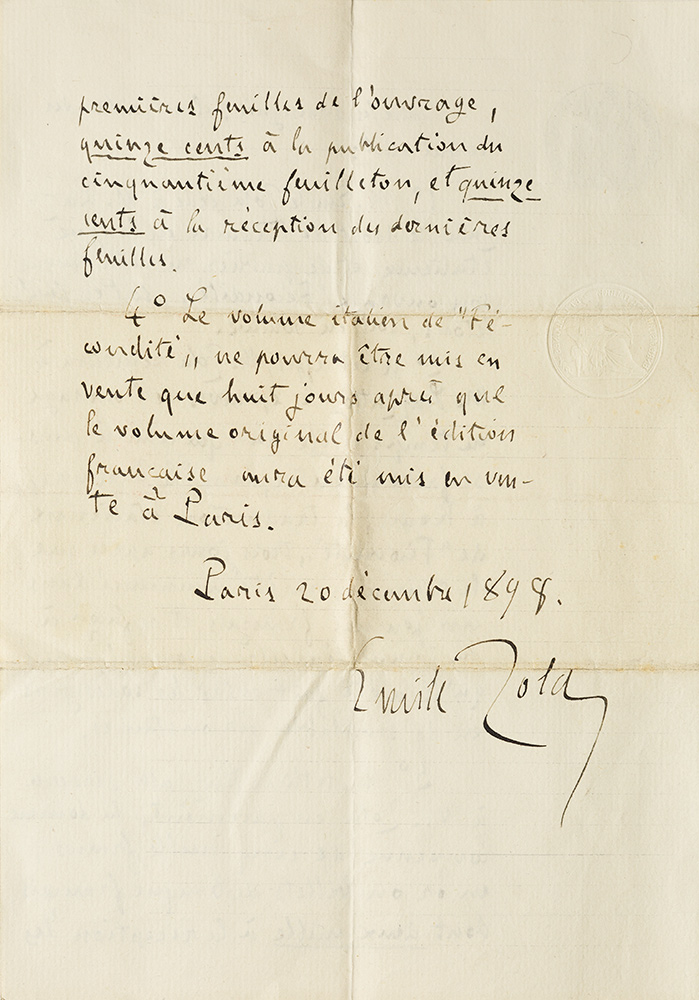 premières feuilles de l'ouvrage,
quinze cents à la publication du
cinquantième feuilleton, et quinze
cents à la réception des dernières
feuilles.
4° Le volume italien de "Fé-
condité,, ne pourra être mis en
vente que huit jours après que
le volume original de l'édition
française aura été mis en ven-
te à Paris.
Paris 20 décembre 1898.
Emile Zola